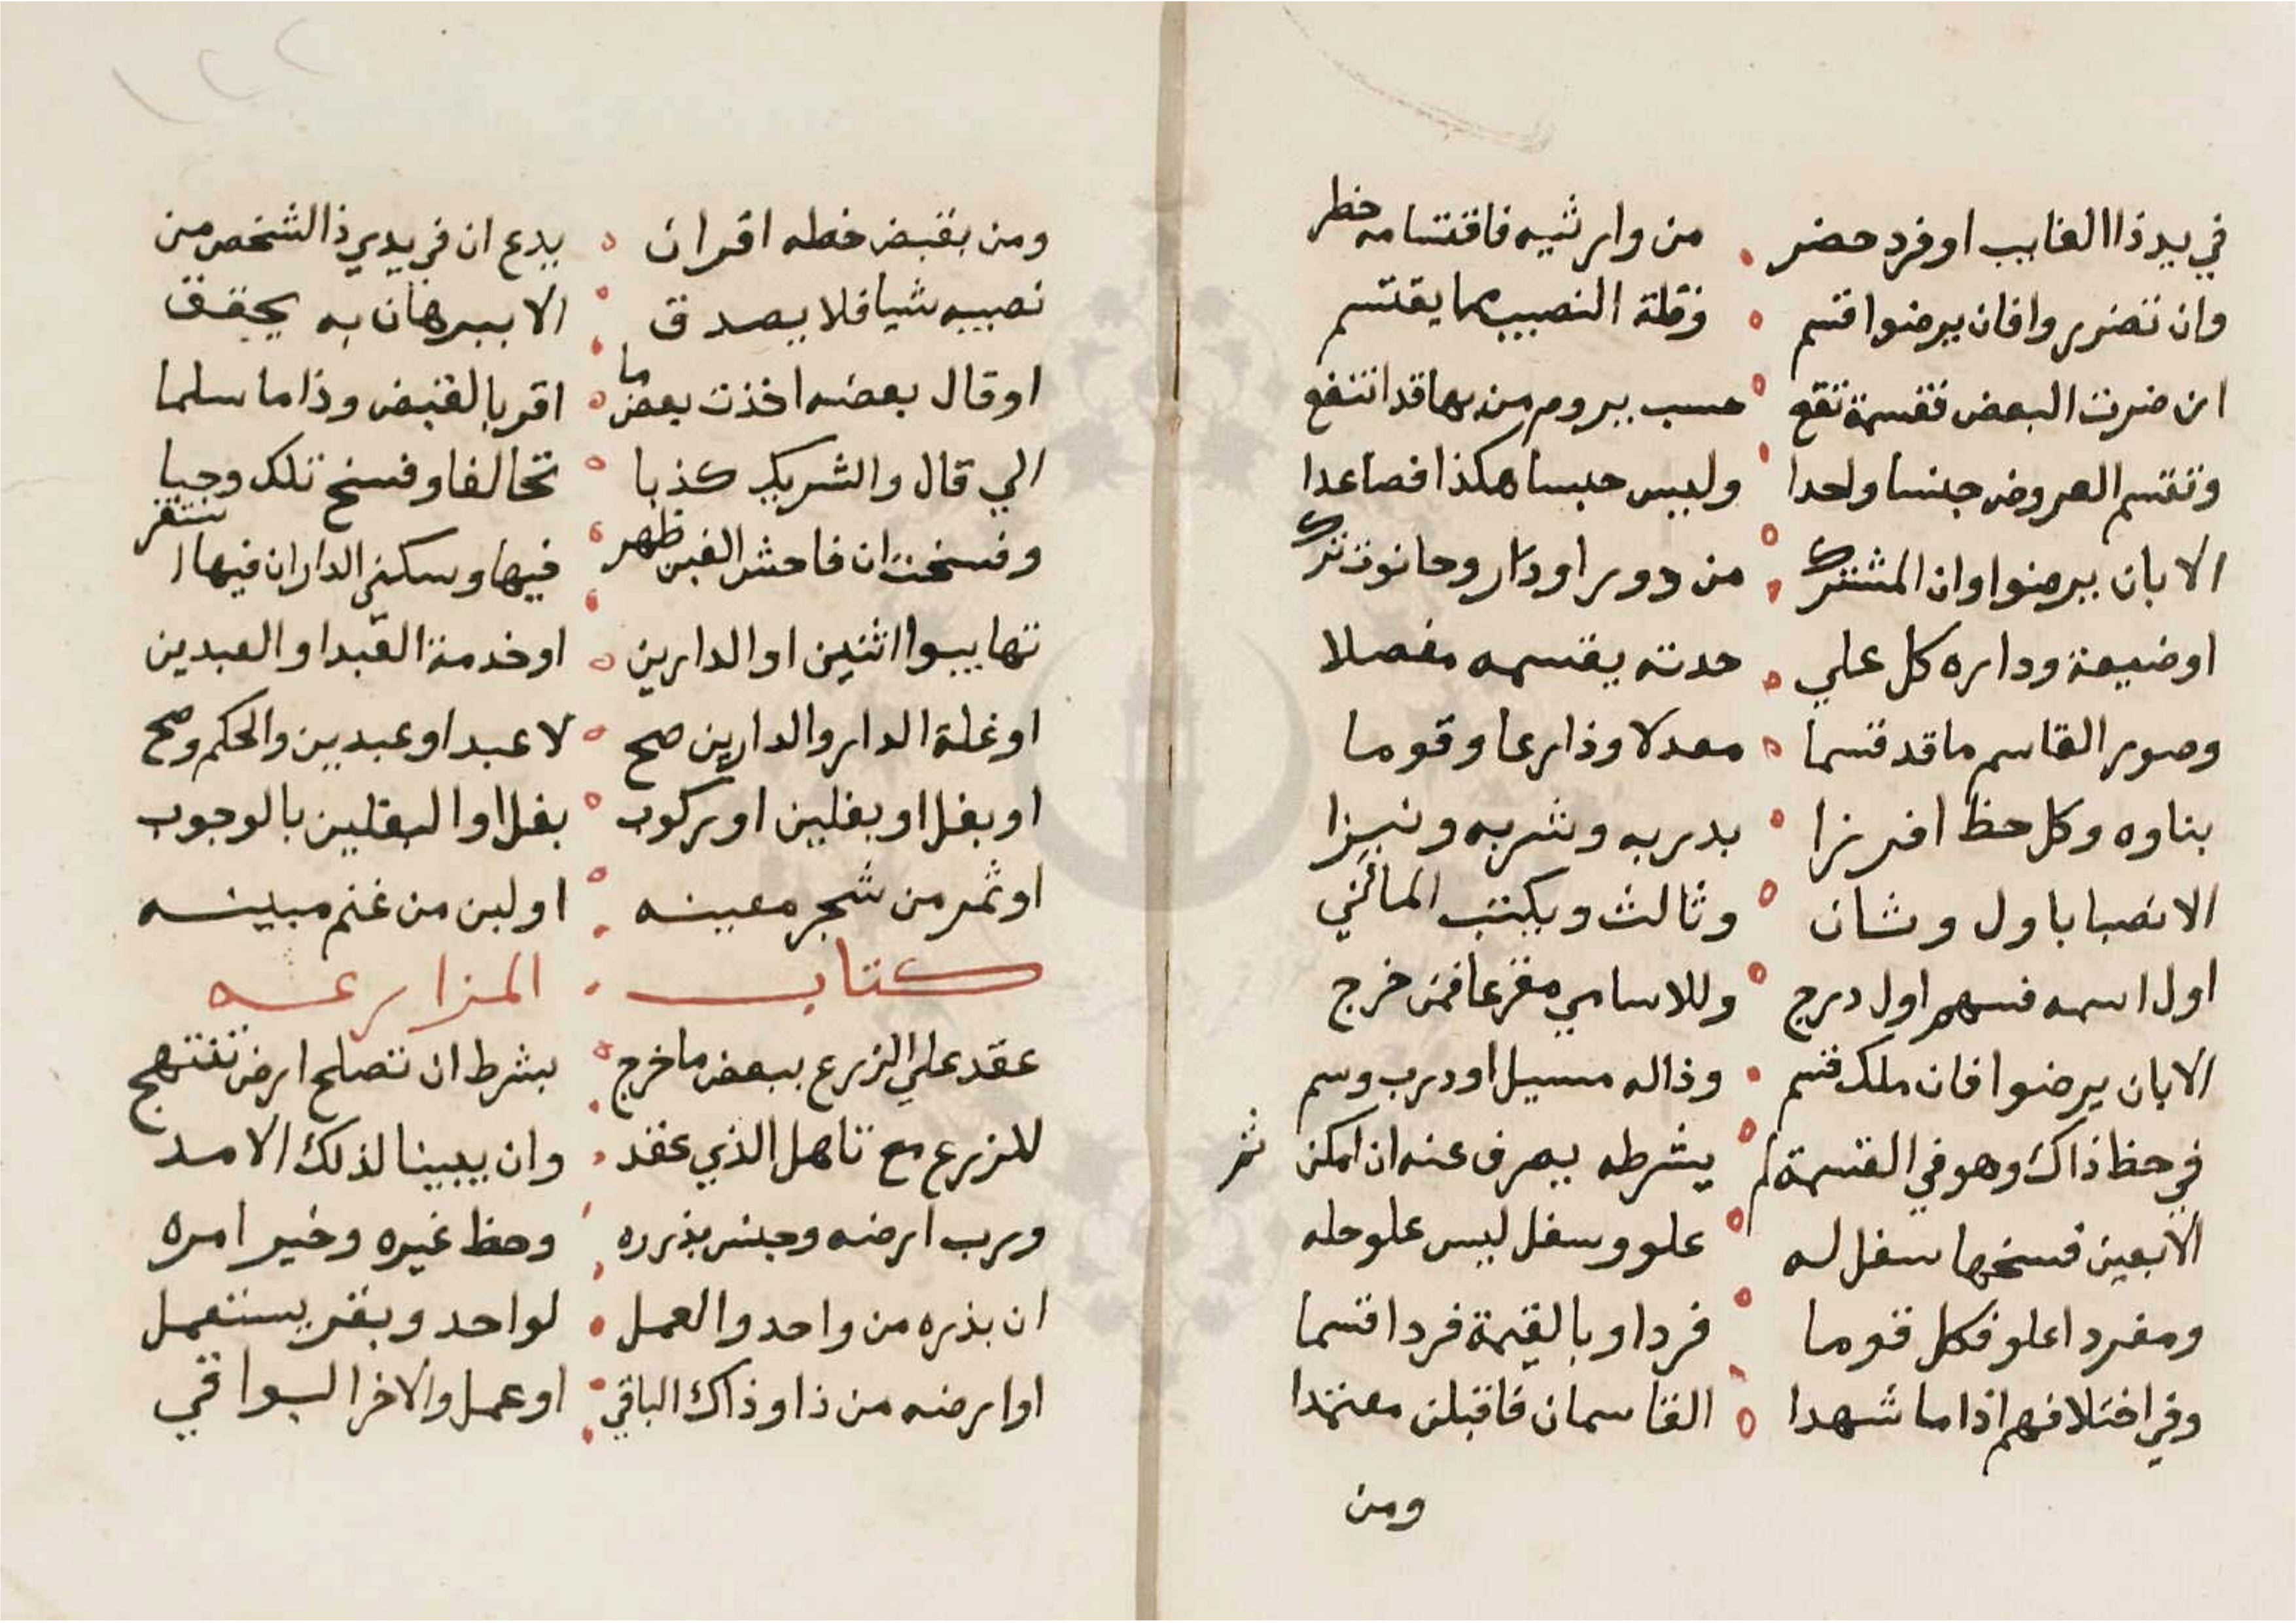 في يد ذا الغايب او فرد حضر من وارثيه فاقتسامه حظر
وان تضرروا فان يرضوا قسم وقلة النصيب مما يقتسم
ان ضرت البعض فقسمة تقع حسب يروم من بها قد انتفع
وتقسم العروض جنسا واحدا وليس حبسا هكذا فصاعدا
الا بان يرضوا وان المشترك من دور او دار وحانوت ترك
او ضيعة وداره كل علي حدته يقسمه مفصلا
وصور القاسم ما قد قسما معدلا وذارعا وقوما
بناوه وكل حظ افرزا بدربه وشربه وتبرزا
الانصبا باول وثان وثالث ويكتب المالني
اول اسمه فسهم اول درج وللاسامي مقرعا فمن خرج
الا بان يرضوا فان ملك قسم وذاله مسيل او درب وسم
في حظ ذاك وهو في القسمة لم يشرطه يصرف عنه ان امكن ثم
الا بعين فسخها سفل له علو وسفل ليس علو حله
ومفرد اعلو فكل قوما فردا وبالقيمة فردا قسما
وفي اختلافهم اذا ما شهدا القاسمان فاقبلن معتمدا
ومن
ومن بقبض خطه اقران يدع ان في يدي ذا الشخص من
نصيبه شيا فلا يصدق الا ببرهان به يحقق
او قال بعضه اخذت بعض ما اقر بالقبض وذا ما سلما
الي قال والشريك كذبا تحالفا وفسخ تلك وجبا
وفسخت ان فاحش الغبن ظهر فيها وسكني الدار ان فيها استقر
تهاييوا اثنين او الدارين او خدمة العبد او العبدين
او غلة الدار والدارين صح لا عبد او عبدين والحكم وضح
او بغل او بغلين او ركوب بغل او البغلين بالوجوب
او ثمر من شجر معينه او لبن من غنم مبينه
كتاب المزارعه
عقد علي الزرع ببعض ما خرج بشرط ان تصلح ارض تنتهج
للزرع مع تاهل الذي عقد وان يبينا لذلك الامد
ورب ارضه وجنس بذره وحظ غيره وخير امره
ان بذره من واحد والعمل لواحد وبقر يستعمل
او ارضه من ذا وذاك الباقي او عمل والاخر البواقي